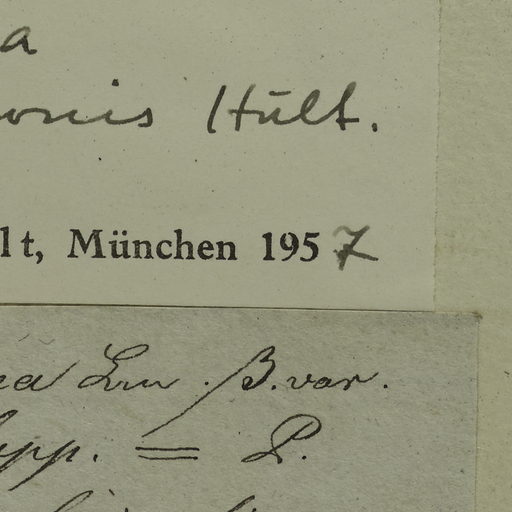 a
onis Hult.
lt, München 1957
ea Lin β. var.
opp. = P.